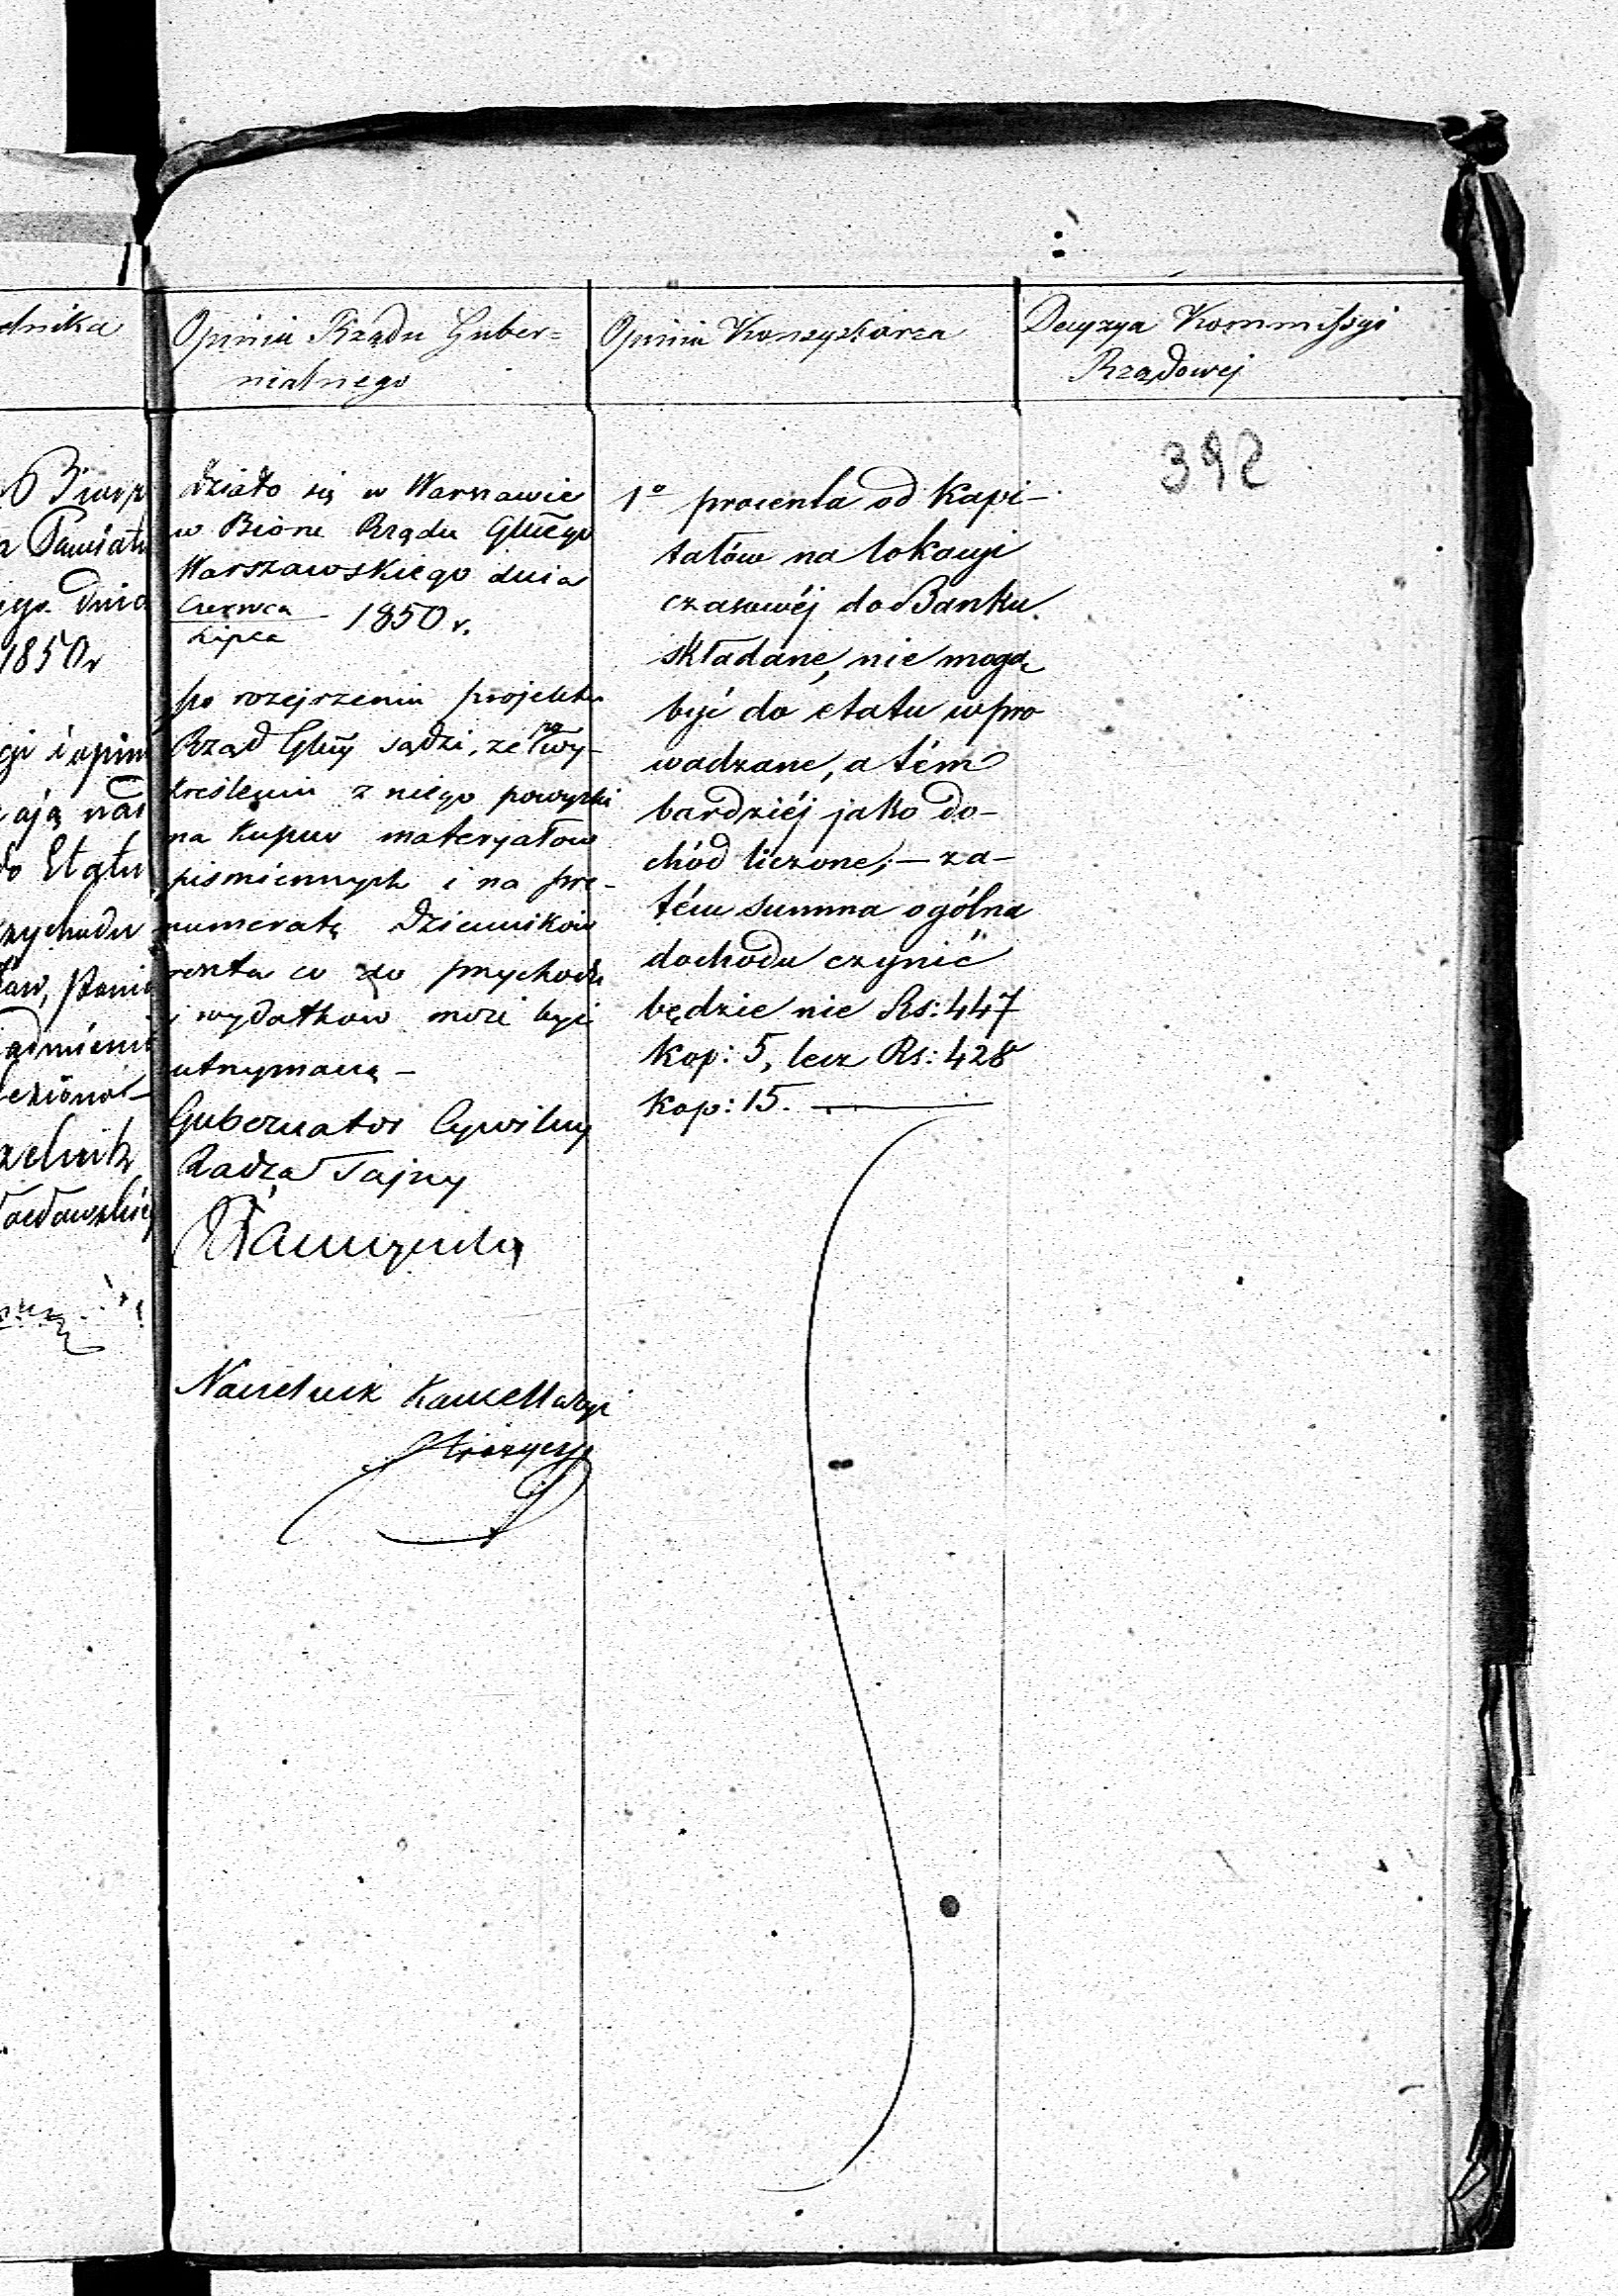 dnika
Opinia Rządu Guber=
nialnego
Opinia Konsystorza
Decyzya Kommissyi
Rządowej
392
Biurz
Powiatu
dnia
1850 r
cyi i opin
ają nas
do Etatu
zychodu
zelnik
Działo się w Warszawie
w Biórze Rządu Głnego
Warszawskiego dnia
Czerwca
Lipca 1850 r.
po rozejrzeniu projektu
Rząd Głny sądzi, że po wy-
kreśleniu z niego powyżki
na kupno materyałów
piśmiennych i na pre-
numeratę Dzienników
reszta co do przychodu
i wydatków może być
utrzymaną –
Gubernator Cywilny
Radca Tajny
Naczelnik Kancellaryi
1o procenta od Kapi-
tałów na lokacyi
czasowéj do Banku
składane, nie mogą
być do etatu wpro
wadzane, a tém
bardziéj jako do-
chód liczone; – za-
tém summa ogólna
dochodu czynić
będzie nie Rs: 447
Kop: 5, lecz Rs: 428
Kop: 15. —